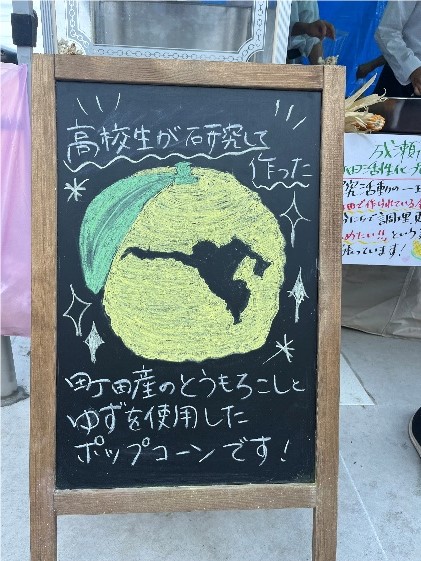 高校生が研究して
作った
町田産のとうもろこしと
ゆずを使用した
ポップコーンです!
成瀬
活性化プ
究活動の一
田で作られている
調理
めたい!!という
張っています!